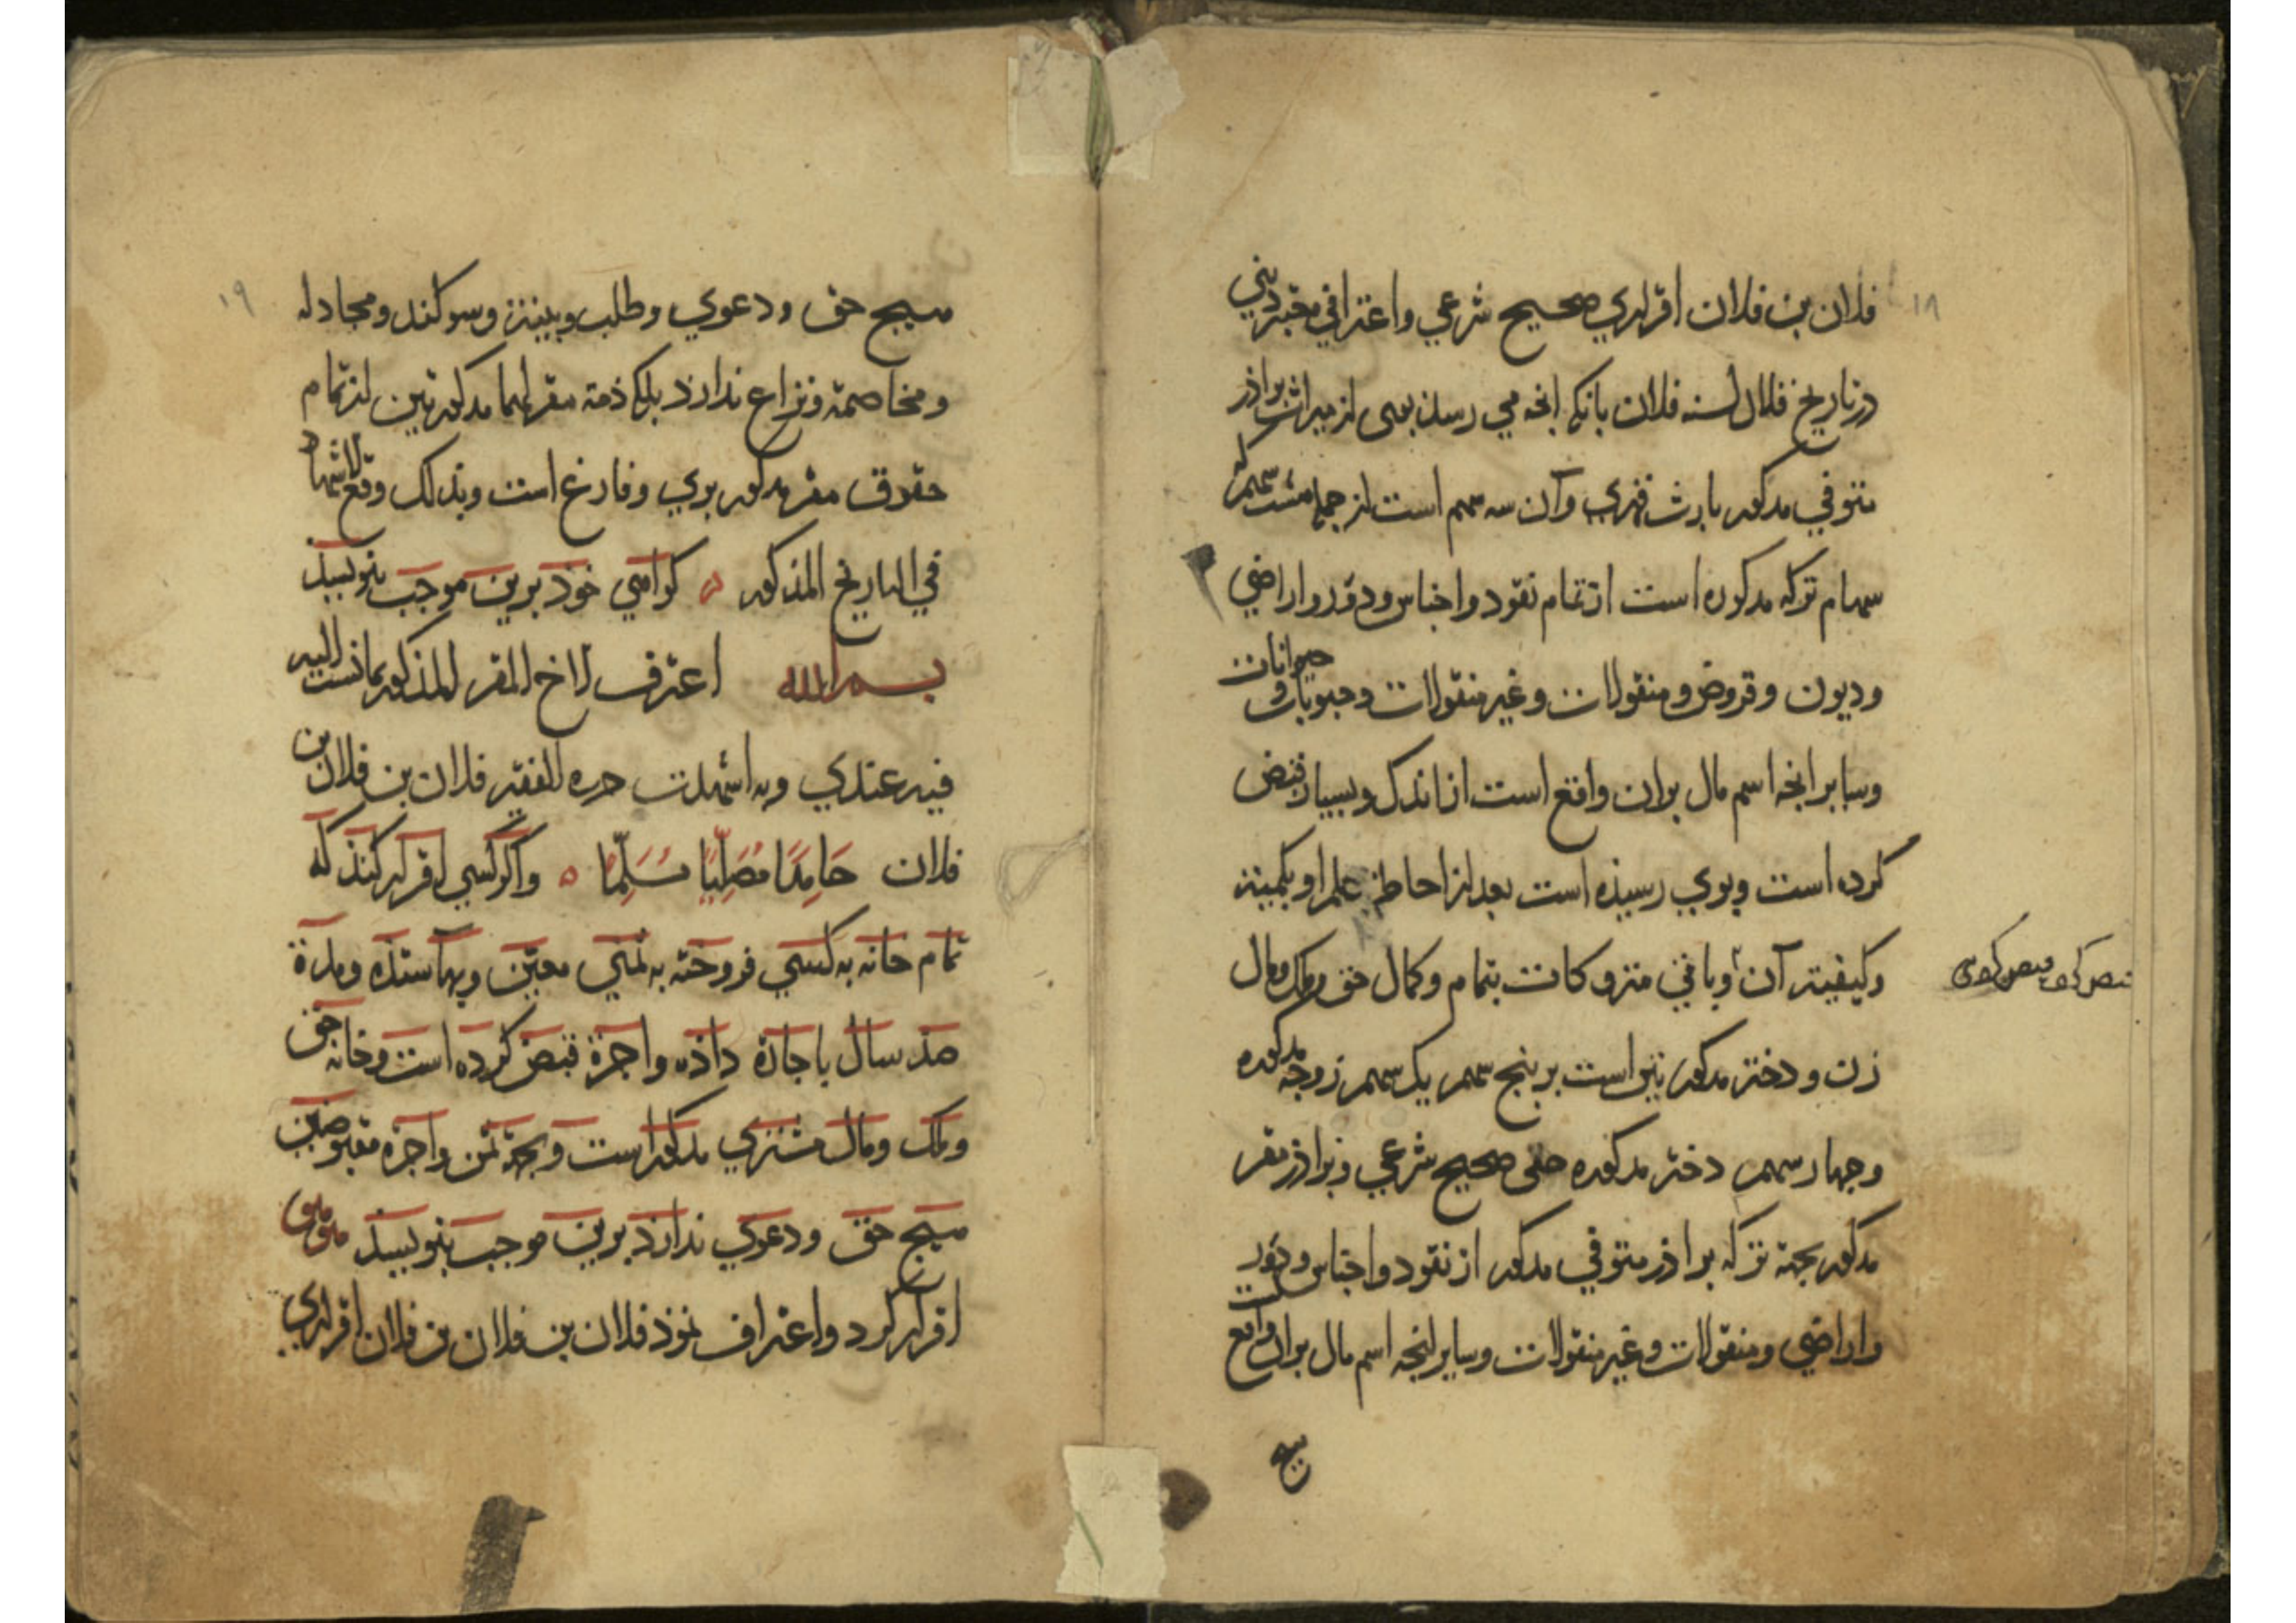 ۱۸
فلان بن فلان اقراری صحیح شرعی واعترافی معتبر دینی
در تاریخ فلان لسنه فلان بانکه انچه می رسد بوی از میراث براذر
متوفی مذکور بارث قهری وآن سه سهم است از جمله هشت سهم که
سهام ترکه مذکوره است از تمام نقود واجناس ودور واراضی
ودیون وقروض ومنقولات وغیر منقولات وحبوبات و حیوانات
وسایر انچه اسم مال بران واقع است از اندک وبسیار قبض
کرده است وبوی رسیذه است بعد از احاطة علم او بکمیته
وکیفیته آن وباقی متروکات بتمام وکمال حق وملک ومال
قبض کرد
زن ودختر مذکورتین است بر پنج سهم یک سهم زوجه مذکوره
وچهار سهم دختر مذکوره حقی صحیح شرعی وبراذر مقر
مذکور بجهة ترکه براذر متوفی مذکور از نقود واجناس ودور
واراضی ومنقولات وغیر منقولات وسایر انچه اسم مال بران واقع است
هیچ
۱۹
هیچ حق ودعوی وطلب وبینة وسوکند ومجادله
ومخاصمة ونزاع ندارذ بلکه ذمة مقر لهما مذکورتین از تمام
حقوق مقر مذکور بری وفارغ است وبذلک وقع الاشهاد
فی التاریخ المذکور ه کواهی خوذ برین موجب بنویسذ
بسم الله اعترف الاخ المقر المذکور بما نسب الیه
فیه عندی وبه اشهدت حرره الفقیر فلان بن فلان بن
فلان حَامِدًا مُصَلِّیًا مُسَلِّمًا ه واکر کسی اقرار کنذ که
تمام خانه به کسی فروخته به ثمنی معین وبها ستذه ومدة
صذ سال باجاره داذه واجرة قبض کرده است وخانه حق
وملک ومال مشتری مذکور است وبجهة ثمن واجره مقبوضین
هیچ حق ودعوی ندارذ برین موجب بنویسذ
اقرار کرد واعتراف نموذ فلان بن فلان بن فلان اقراری